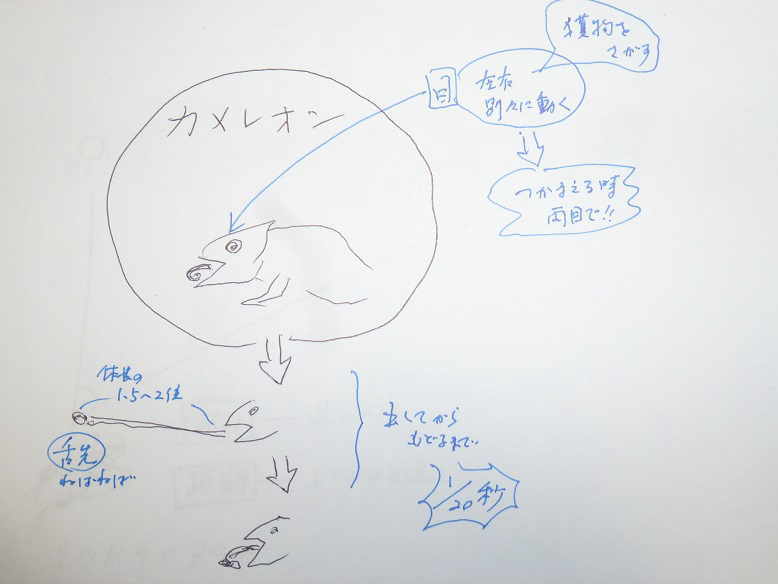 獲物を
さがす
目
左右
別々に動く
カメレオン
つかまえる時
両目で!!
体長の
1.5〜2倍
舌先
ねばねば
出してから
もどるまで
1/20秒